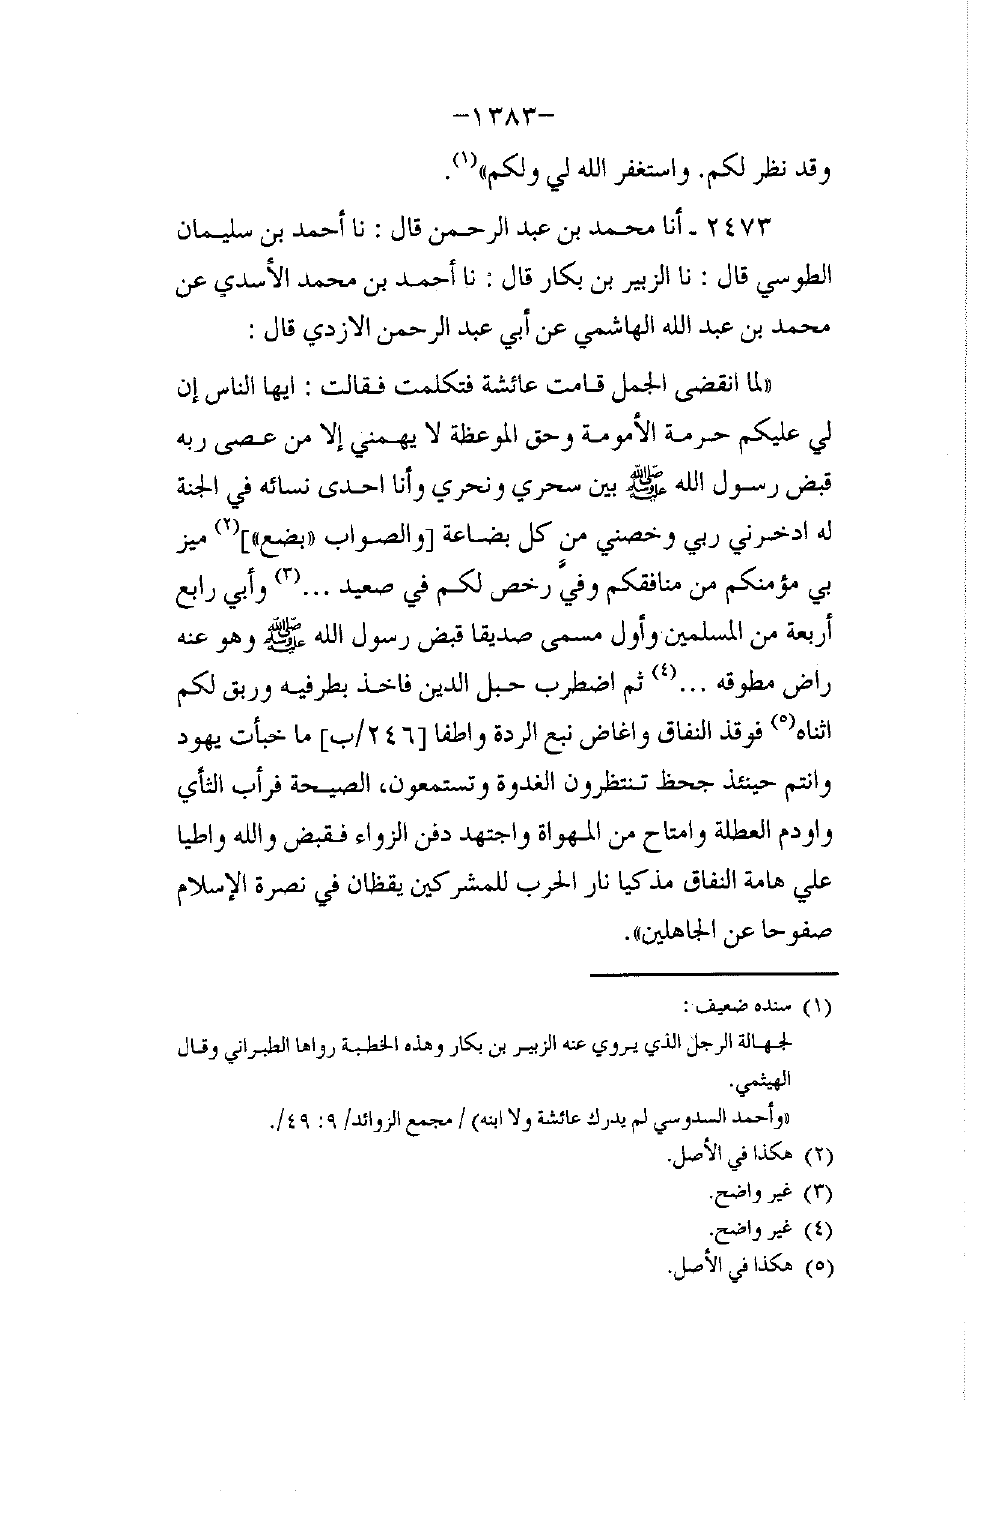 -١٣٨٣-
وقد نظر لكم. واستغفر الله لي ولكم»(١).
٢٤٧٣ ـ أنا محمد بن عبد الرحمن قال : نا أحمد بن سليمان
الطوسي قال : نا الزبير بن بكار قال : نا أحمد بن محمد الأسدي عن
محمد بن عبد الله الهاشمي عن أبي عبد الرحمن الازدي قال :
«لما انقضى الجمل قامت عائشة فتكلمت فقالت : ايها الناس إن
لي عليكم حرمة الأمومة وحق الموعظة لا يهمني إلا من عصى ربه
قبض رسول الله ﷺ بين سحري ونحري وأنا احدى نسائه في الجنة
له ادخرني ربي وخصني من كل بضاعة [والصواب «بضع»](٢) ميز
بي مؤمنكم من منافقكم وفيَّ رخص لكم في صعيد ...(٣) وأبي رابع
أربعة من المسلمين وأول مسمى صديقا قبض رسول الله ﷺ وهو عنه
راض مطوقه ...(٤) ثم اضطرب حبل الدين فاخذ بطرفيه وربق لكم
اثناه(٥) فوقذ النفاق واغاض نبع الردة واطفا [٢٤٦/ب] ما خبأت يهود
وانتم حينئذ جحظ تنتظرون الغدوة وتستمعون، الصيحة فرأب الثأي
واودم العطلة وامتاح من المهواة واجتهد دفن الزواء فقبض والله واطيا
علي هامة النفاق مذكيا نار الحرب للمشركين يقظان في نصرة الإسلام
صفوحا عن الجاهلين».
(١) سنده ضعيف :
لجهالة الرجل الذي يروي عنه الزبير بن بكار وهذه الخطبة رواها الطبراني وقال
الهيثمي.
«وأحمد السدوسي لم يدرك عائشة ولا ابنه) / مجمع الزوائد/ ٩: ٤٩/.
(٢) هكذا في الأصل.
(٣) غير واضح.
(٤) غير واضح.
(٥) هكذا في الأصل.